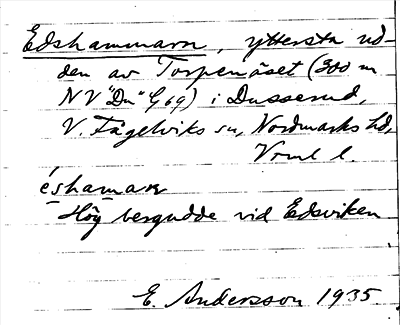 Edshammarn, yttersta ud-
den av Torpenäset (300 m
NV "Du" G69) i Dusserud,
V. Fågelviks sn, Nordmarks hd,
Vrml l.
éshamar
Hög bergudde vid Edsviken
E. Andersson 1935